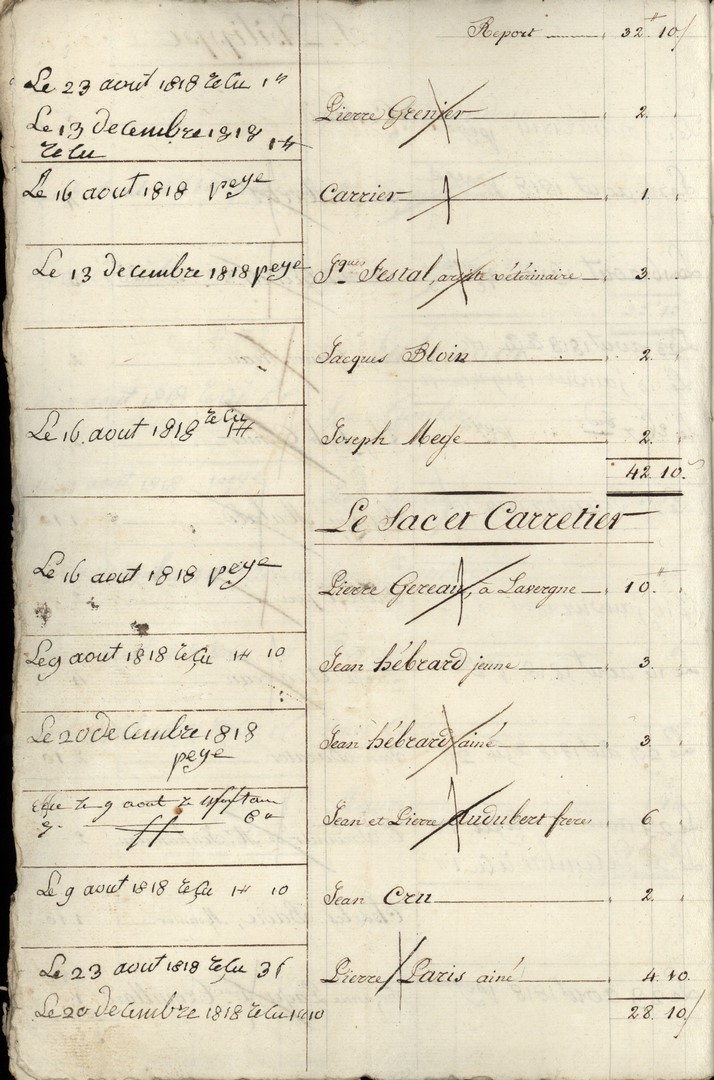 Report 32 10
Le 23 août 1818 reçu 1
Le 13 decembre 1818
reçu 1
Pierre Grenier 2
Le 16 août 1818 peye
Carrier 1
Le 13 decembre 1818 peye
Jques Festal, artiste vétérinaire 3
Jacques Bloin 2
Le 16 aout 1818 reçu 1
Joseph Meye 2
42 10
Le Sac et Carretier
Le 16 aout 1818 peye
Pierre Gereau, à Lavergne 10
Le 9 aout 1818 reçu 1 10
Jean hébrard jeune 3
Le 20 decembre 1818
peye
Jean hébrard ainé 3
le 9 aout
Jean et Pierre Audubert freres 6
Le 9 aout 1818 reçu 1 10
Jean Cru 2
Le 23 août 1818 reçu 3
Le 20 decembre 1818 reçu 1 10
Pierre Paris ainé 4 10
28 10